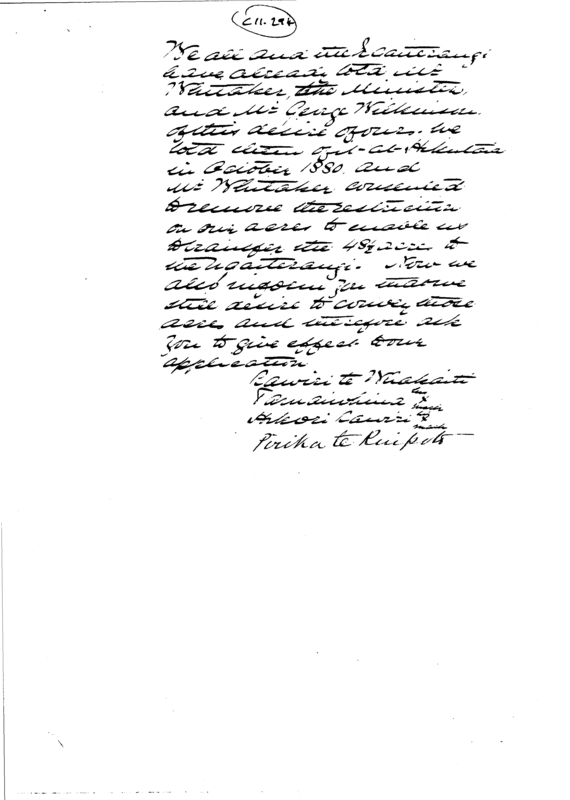 C11.294
We all and the Ngaiterangi
have already told Mr
Whitaker, the Minister,
and Mr George Wilkinson
of this desire of ours. We
told them of it at
in October 1880. And
Mr Whitaker consented
to remove the restriction
on our acres to enable us
to transfer the 48½ acres to
the Ngaiterangi. Now we
also inform you that we
still desire to convey those
acres and therefore ask
you to give effect to our
application
Rawiri te Whakaiti
her x mark
Rawiri his x mark
Pirika te